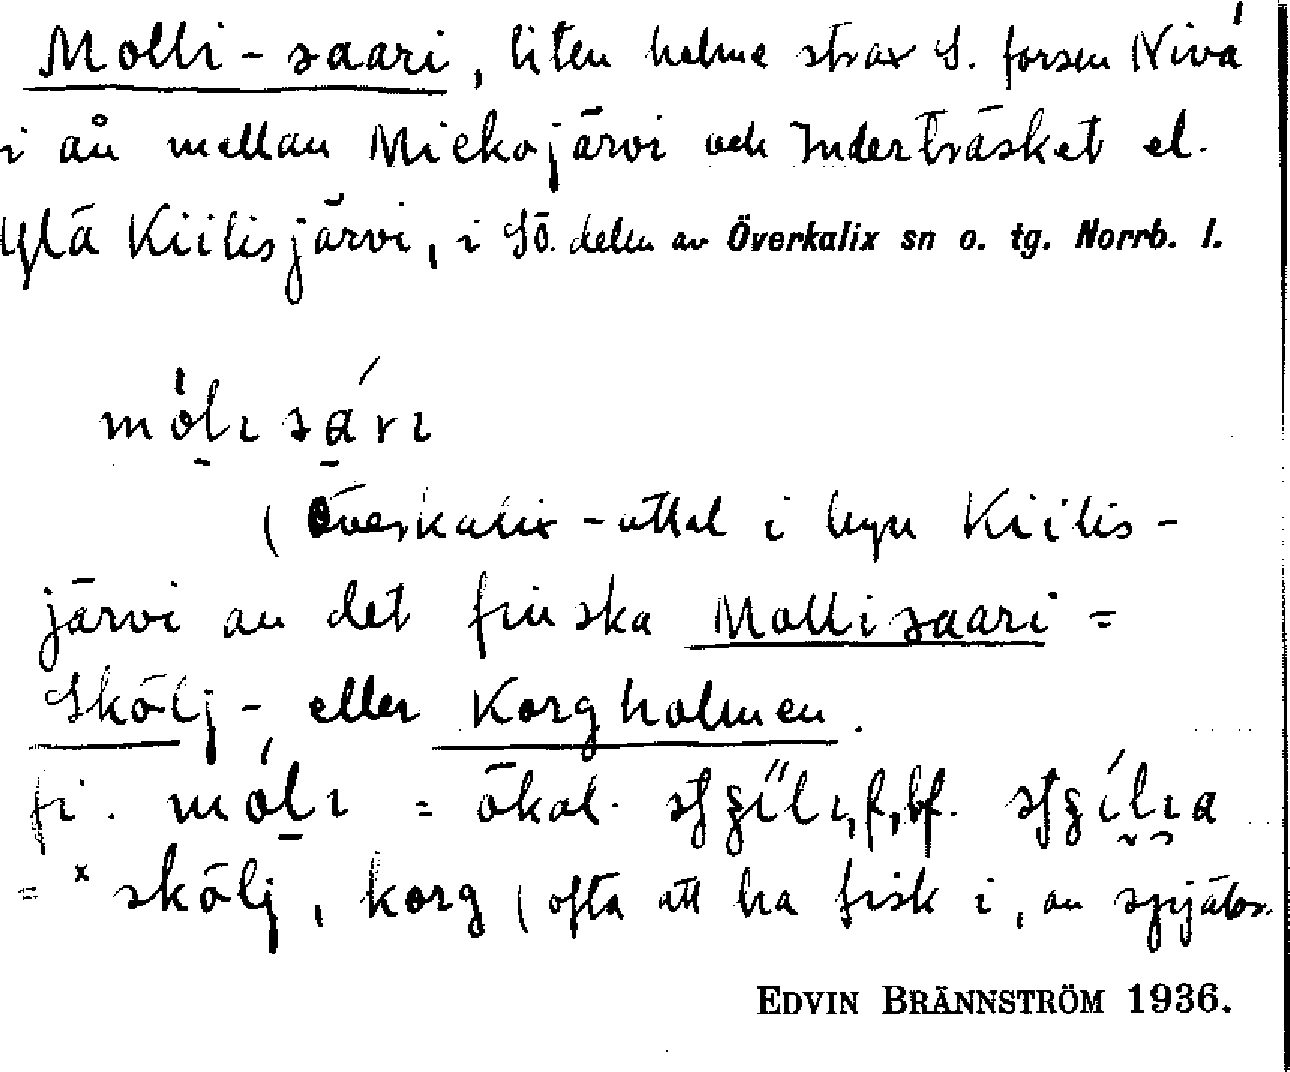 Molli-saari, liten holme strax S. forsen Nivá
i ån mellan Miekojärvi och Inderträsket el.
Ylä Kiilisjärvi, i SÖ. delen av Överkalix sn o. tg. Norrb. l.
(Överkalix-uttal i byn Kiilis-
järvi av det finska Mollisaari =
Skölj- eller Korgholmen.
fi. = ökal. f, bf.
= x skölj, korg (ofta att ha fisk i, av
EDVIN BRÄNNSTRÖM 1936.